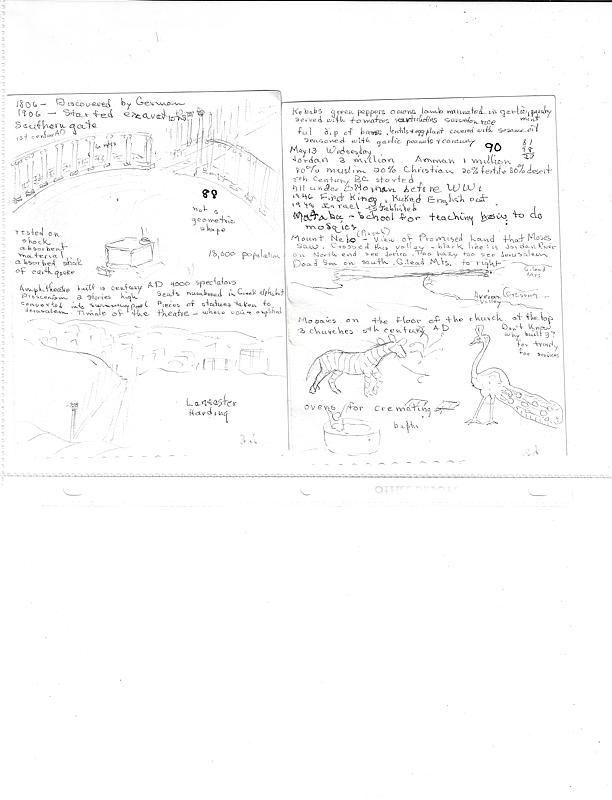 1806 - Discovered by German
1906 - Started excavation
Southern gate
1st century AD
88
not a
geometric
shape
rested on
shock
absorbent
material
absorbed shock
of earthquake
18,000 population
Amphitheatre built 1st century AD 4000 spectators
Proscenium 2 stories high Seats numbered in Greek alphabet
converted into swimming pool Pieces of statues taken to
Jerusalem Middle of the theatre - where voice amplified
Lancaster
Harding
Kebobs green peppers onions lamb marinated in garlic, parsley
served with tomatoes rice mint
ful dip of beans, lentils eggplant covered with sesame oil
seasoned with garlic
90
May 13 Wednesday
Jordan 3 million Amman 1 million
80% muslim 20% Christian 20% fertile 80% desert
5th Century BC started
All under Ottoman before WW1
1946 First King, Kicked English out
1948 Israel established
Mataba - School for teaching how to do
mosaics
Mount Nebo - View of Promised Land that Moses
saw. Crossed this valley - black line is Jordan River
on North end see Jerico. Too hazy too see Jerusalem
Dead Sea on south. Gilead Mts. to right
Gilead
Mts.
valley
Mosaics on the floor of the church at the top
3 churches 5th century AD
Don't know
why built 3?
for trinity
for services
ovens for cremating